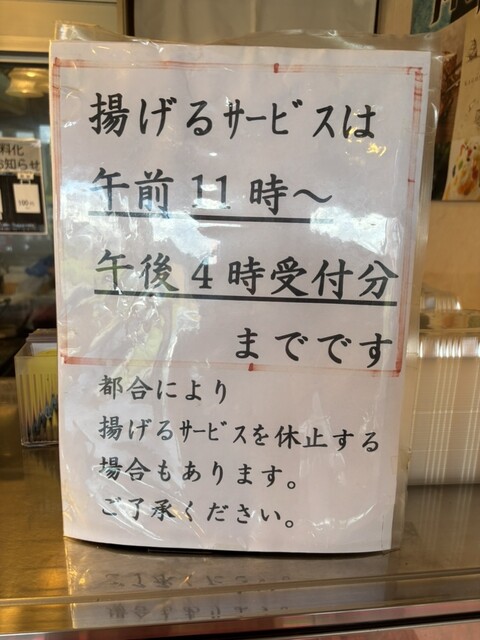 揚げるｻｰﾋﾞｽは
午前11時～
午後4時受付分
までです
都合により
揚げるｻｰﾋﾞｽを休止する
場合もあります。
ご了承ください。
料化
お知らせ